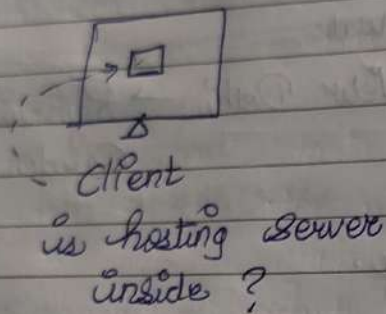 Client
is hosting server
inside ?